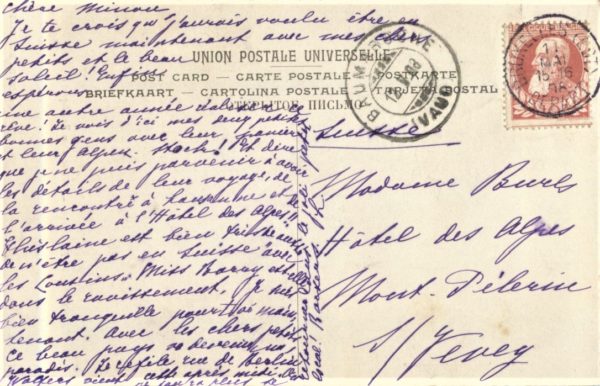 Chère Minou
Je te crois que j'aurais voulu être en
Suisse maintenant avec mes chers
petits et le beau
soleil! Enfin
espérons
une autre année d'aller ce
rêve! Je vois d'ici mes deux petits
bonnes gens avec leur panier
et leur Alpen Stock! Et dire
que je ne puis parvenir à avoir
les détails de leur voyage, de
la rencontre à Lausanne et de
l'arrivée à l'Hôtel des Alpes!
Ghislaine est bien triste
de n'être pas en Suisse avec
les Cousins. Miss Barry est
dans le ravissement. Je suis
bien tranquille pour toi main
tenant. Avec les chers petits
ce beau pays va devenir un
paradis. Le rue de Berlin
vient cette après midi.
UNION POSTALE UNIVERSELLE
POST CARD — CARTE POSTALE — POSTKARTE
BRIEFKAART — CARTOLINA POSTALE — TARJETA POSTAL
BAUMA
(VAUD)
BRUXELLES
11
MAI
Suisse
Madame Burls
Hôtel des Alpes
Mont-Pélerin
s/ Vevey